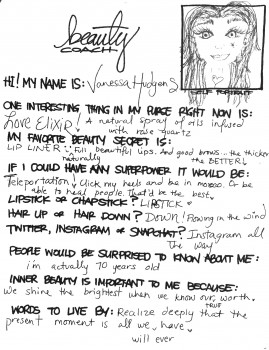 beauty
COACH
SELF PORTRAIT
HI! MY NAME IS: Vanessa Hudgens
ONE INTERESTING THING IN MY PURSE RIGHT NOW IS:
Love Elixir! A natural spray of oils infused
with rose quartz
MY FAVORITE BEAUTY SECRET IS:
LIP LINER Full beautiful lips. And good brows - the thicker
naturally the BETTER!
IF I COULD HAVE ANY SUPERPOWER IT WOULD BE:
Teleportation! Click my heels and be in morocco. Or be
able to heal people. That'd be the best.
LIPSTICK OR CHAPSTICK? LIPSTICK
HAIR UP OR HAIR DOWN? Down! Flowing in the wind
TWITTER, INSTAGRAM OR SNAPCHAT? Instagram all
the way
PEOPLE WOULD BE SURPRISED TO KNOW ABOUT ME:
i'm actually 70 years old
INNER BEAUTY IS IMPORTANT TO ME BECAUSE:
We shine the brightest when we know our true worth.
WORDS TO LIVE BY: Realize deeply that the
present moment is all we have
will ever